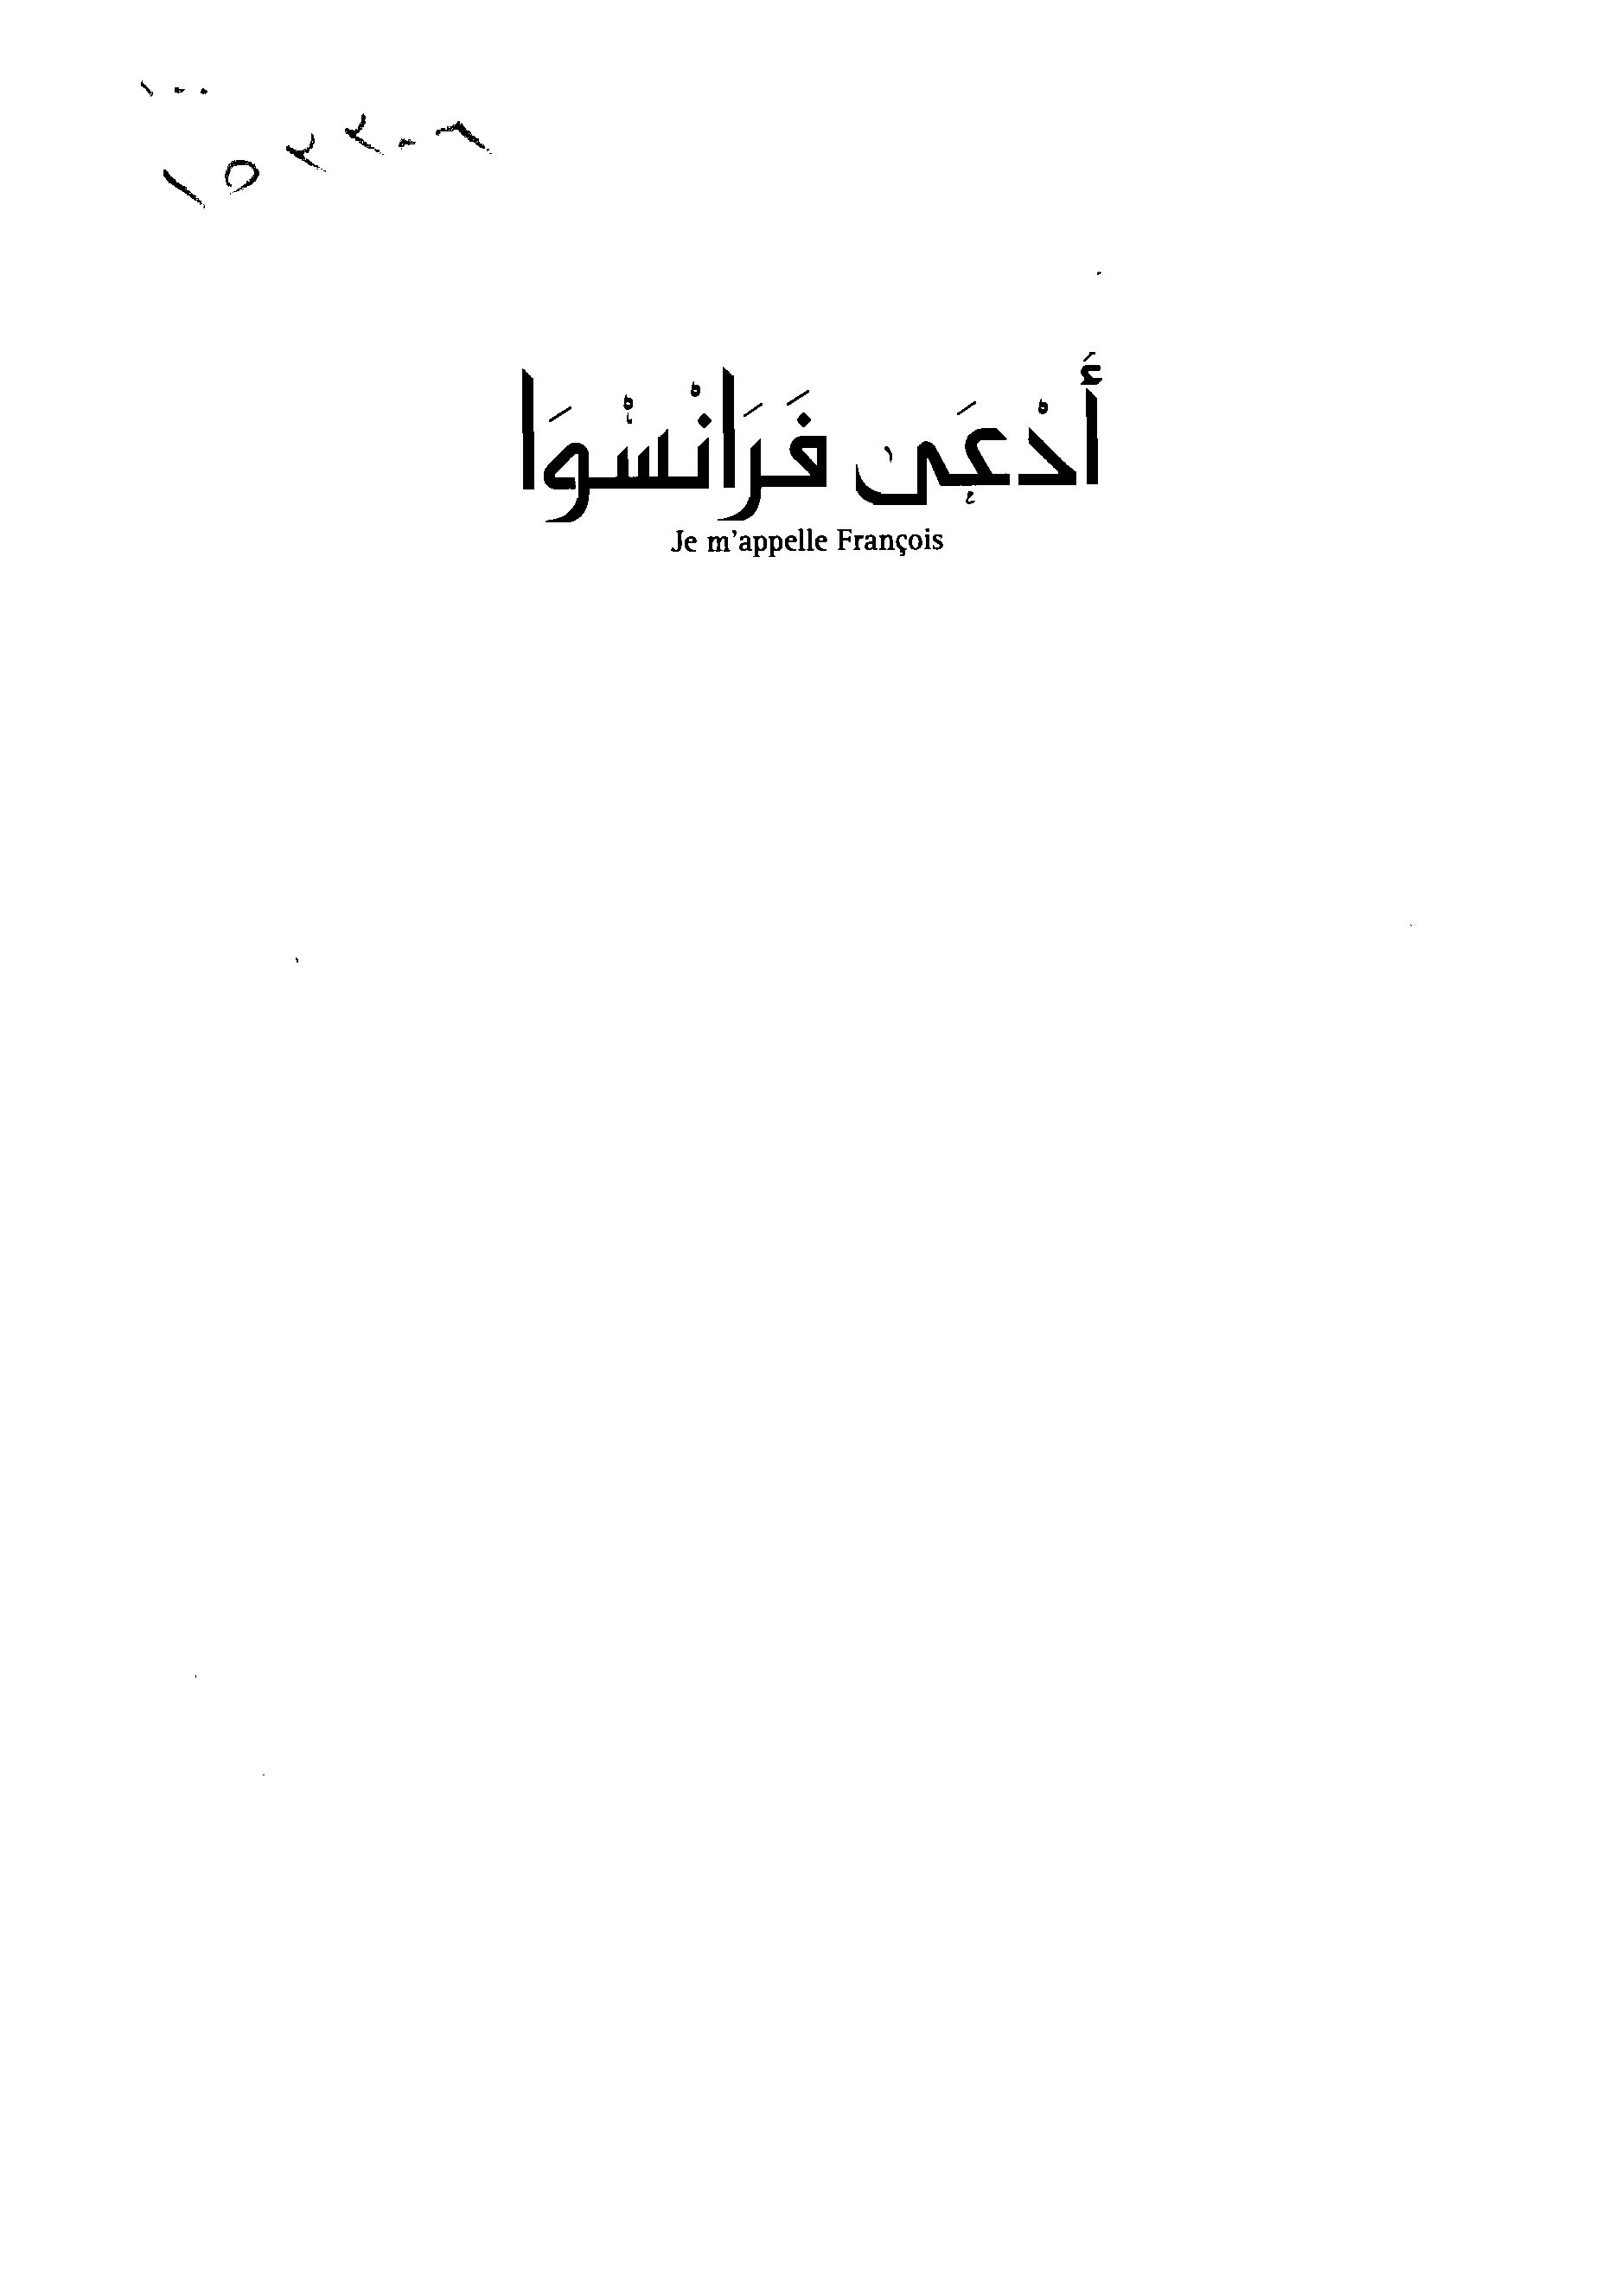 ١٠٠
١٥٢٢٠٩
أَدْعَى فَرَانْسْوَا
Je m'appelle François